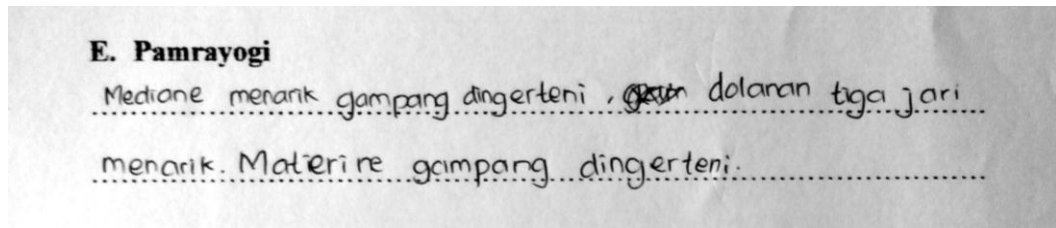 E. Pamrayogi
Mediane menarik gampang dingerteni, dolanan tiga jari
menarik. Materire gampang dingerteni.